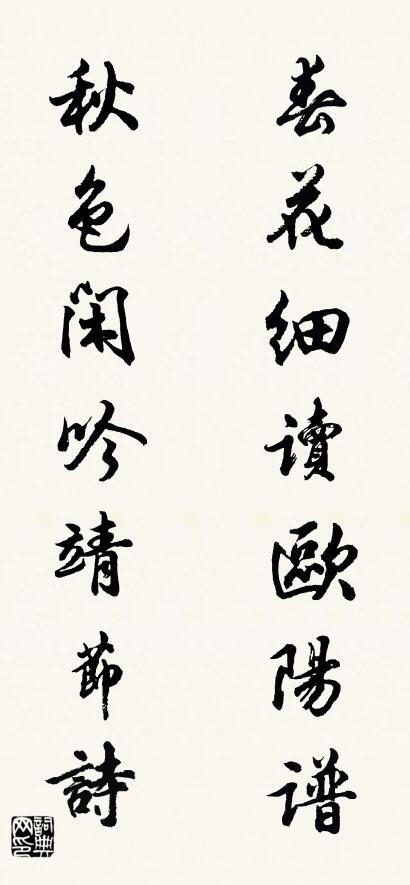 春花细讀歐陽谱
秋色閑吟靖節詩
詞典网印